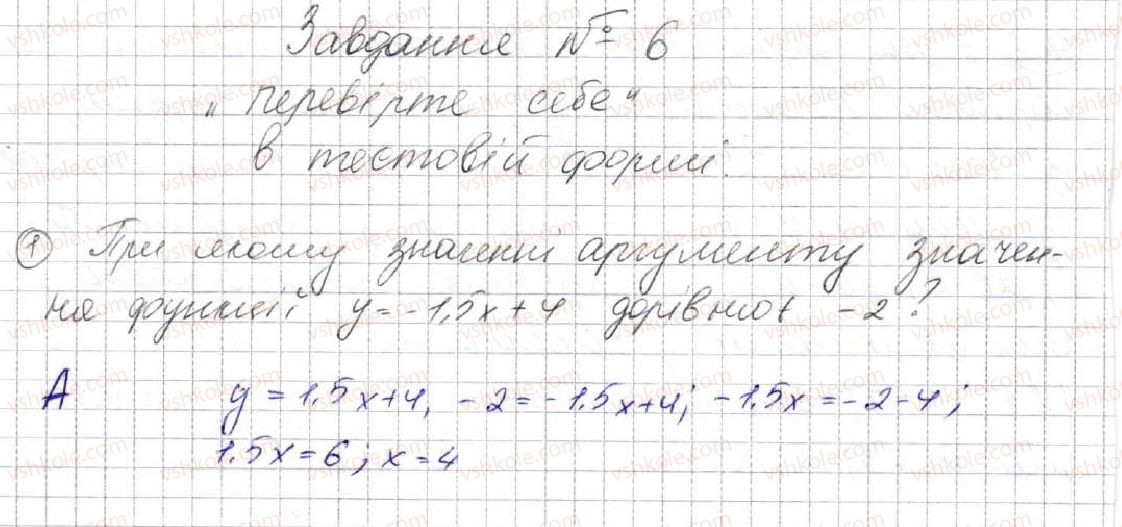 Завдання № 6
„перевірте себе“
в тестовій формі.
1 При якому значенні аргументу значен-
ня функції y = -1,5x + 4 дорівнює -2?
А y = 1.5x+4, -2 = -1.5x+4; -1.5x = -2-4;
1.5x = 6; x = 4